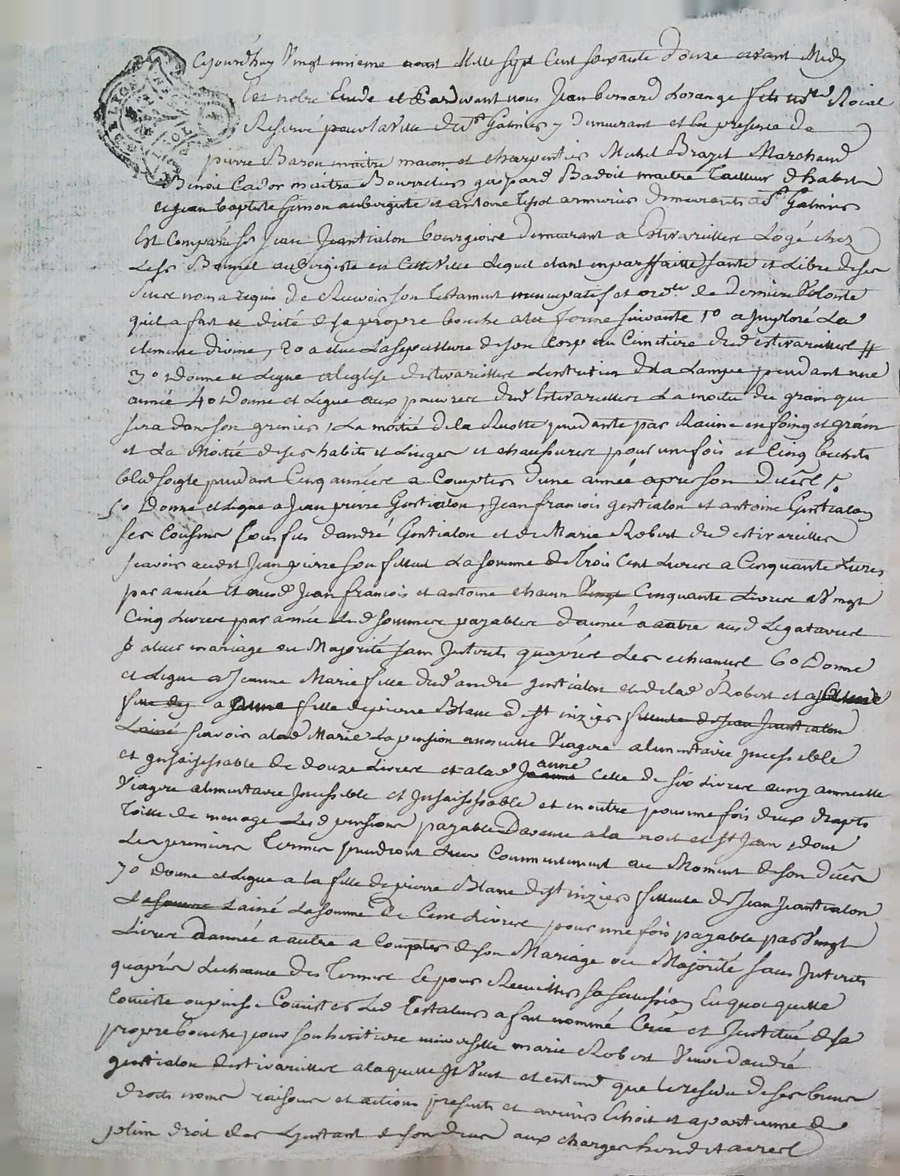 Cejourdhuy Vingt unieme aout Mille sept Cent soixante Douze avant Midy
notre Etude et Pardevant nous Jean Bernard Lorange fils no.re Roial
Reservé pour la Ville de St Galmier y demeurant et en presence de
pierre Baron maitre macon et charpentier Michel Brazet Marchand
Benoit Cador maitre Bourrelier gaspard Badoit maitre Tailleur d'habits
et jean baptiste Simon aubergiste et antoine armurier demeurants a St Galmier
Est Comparé Sr Jean Jeantialon bourgeois demeurant a Estivareilles Logé chez
Le Sr Bonnet aubergiste en Cette Ville Lequel etant en parffaitte santé et Libre de ses
sens nous a requis de Recevoir son Testament nuncupatif et de derniere Volonté
quil a fait et dicté de sa propre bouche a la forme suivante 1o a Imploré La
clemence divine, 2o a elu La sepulture de son Corps au Cimetière dud estivareilles
3o Donne et Legue a l'eglise destivareilles L'entretien de la Lampe pendant une
année 4o Donne et Legue aux pauvres dud Estivareilles La moitié du grain qui
sera dans son grenier, La moitié de la Recolte pendante par Racine en foing et grain
et La Moitié de ses habits et Linges et chaussures pour une fois et Cinq bichets
bled soigle pendant Cinq années a Compter d'une année apres son decés
5o Donne et Legue a Jean pierre Gentialon, Jean françois gentialon et antoine Gentialon
ses Cousins tous fils d'andré Gentialon et de Marie Robert dud estivareilles
scavoir audit Jean pierre son filleul La somme de Trois Cent Livres a Cinquante Livres
par année Et auxd Jean françois et antoine chacun Vingt Cinquante Livres a Vingt
Cinq Livres par année Lesd sommes payables d'année a autre auxd Legataires
a leur mariage ou Majorité sans Interets quapres Les echeances 6o Donne
et Legue a Jeanne Marie fille dud andré gentialon et de lad Robert et a
fille de a Jeanne fille de pierre Blanc de St inizier filleule de Jean Jeantialon
Lainé scavoir a lad Marie La pension annuelle Viagere alimentaire Incessible
et Insaisissable de douze Livres et a lad Jeanne anne Celle de six Livres aussy annuelle
Viagere alimentaire Incessible et Insaisissable et en outre pour une fois deux draps
Toille de menage Lesd pensions payables D'avance a la noel et St Jean, dont
Les premiers Termes prendront Leur Commencement au Moment de son decés
7o donne et Legue a la fille de pierre Blanc de St inizier filleule de Jean Jeantialon
La somme Lainé La somme de Cent Livres pour une fois payable par Vingt
Livres d'année a autre a Compter de son Mariage ou Majorité sans Interets
quapres Lecheance des Termes Et pour Recueillir sa succession En quoy quelle
Consiste ou puisse Consister Led Testateur a fait nommé Créé et Institué de sa
propre bouche pour son heritiere universelle marie Robert Veuve d'andré
gentialon destivareilles a laquelle Il Veut et entend que le residu de ses biens
droits noms raisons et actions presents et avenirs Echoit et apartienne de
plein droit des Linstant de son deces aux charges susd